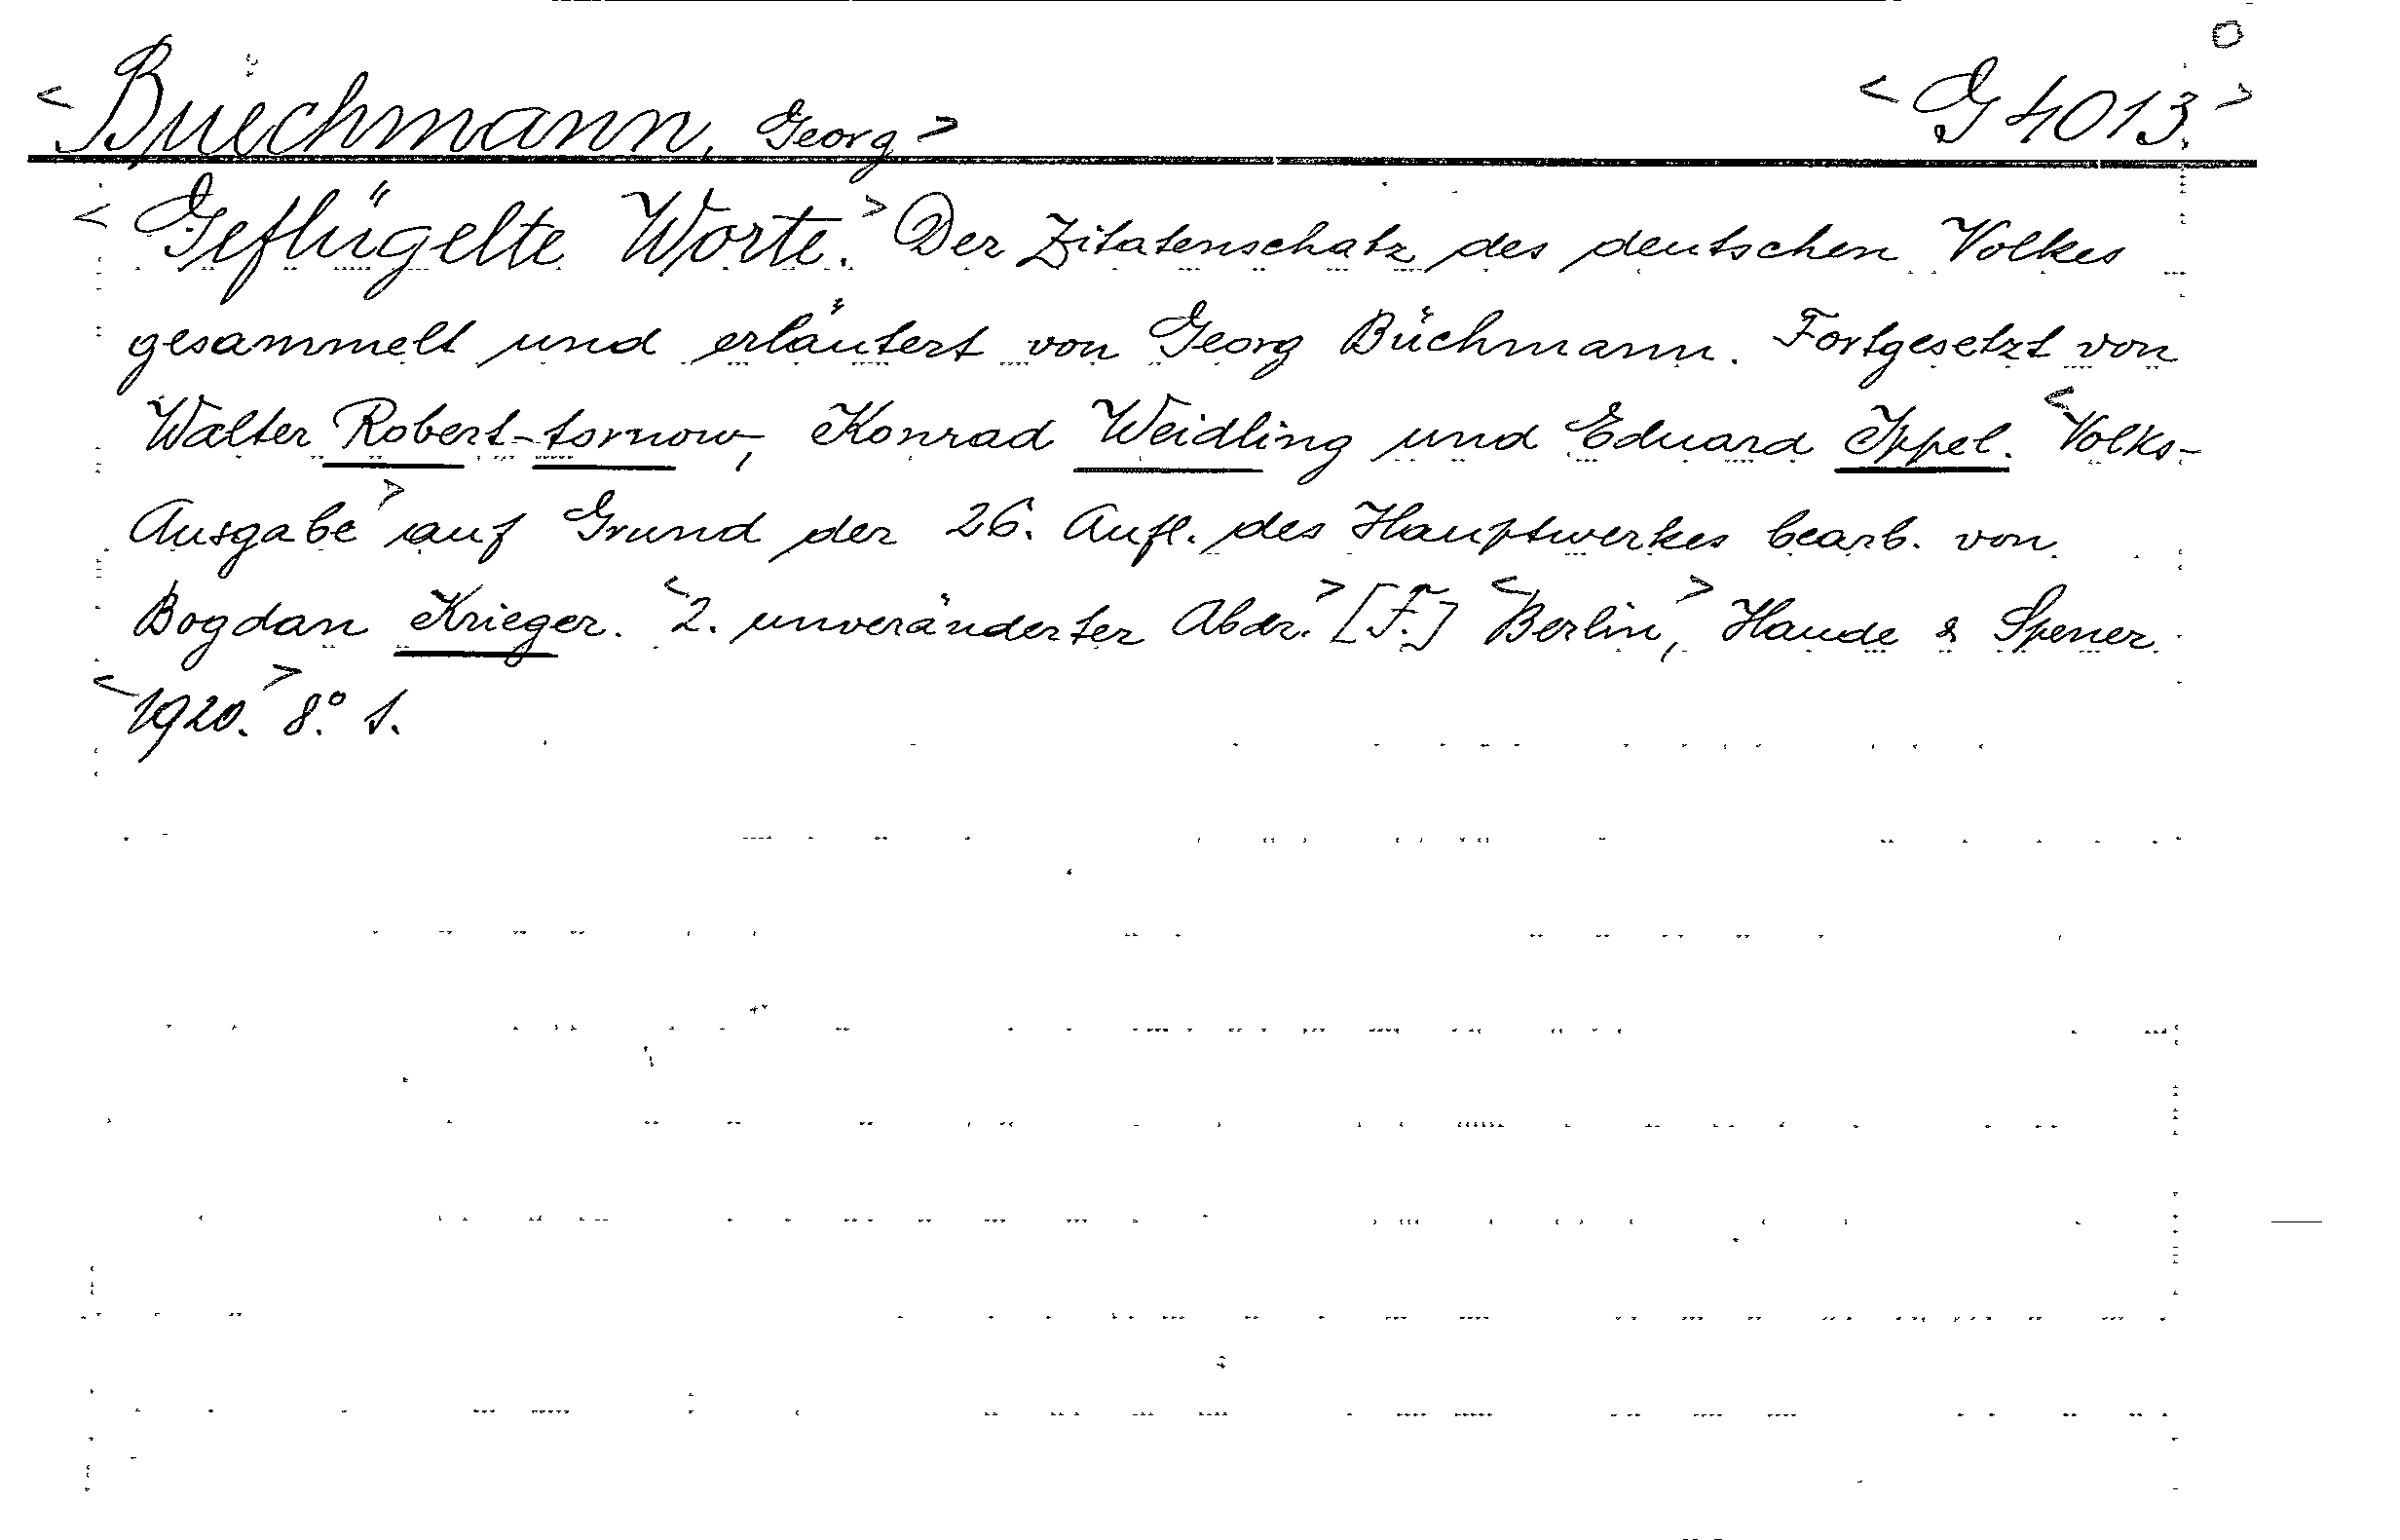 <Buechmann, Georg> <G 4013.>
<Geflügelte Worte.> Der Zitatenschatz des deutschen Volkes
gesammelt und erläutert von Georg Büchmann. Fortgesetzt von
Walter Robert-tornow, Konrad Weidling und Eduard Ippel. <Volks-
Ausgabe> auf Grund der 26. Aufl. des Hauptwerkes bearb. von
Bogdan Krieger. <2. unveränderter Abdr.> [F.] <Berlin,> Haude & Spener
<1920.> 8.° 1.